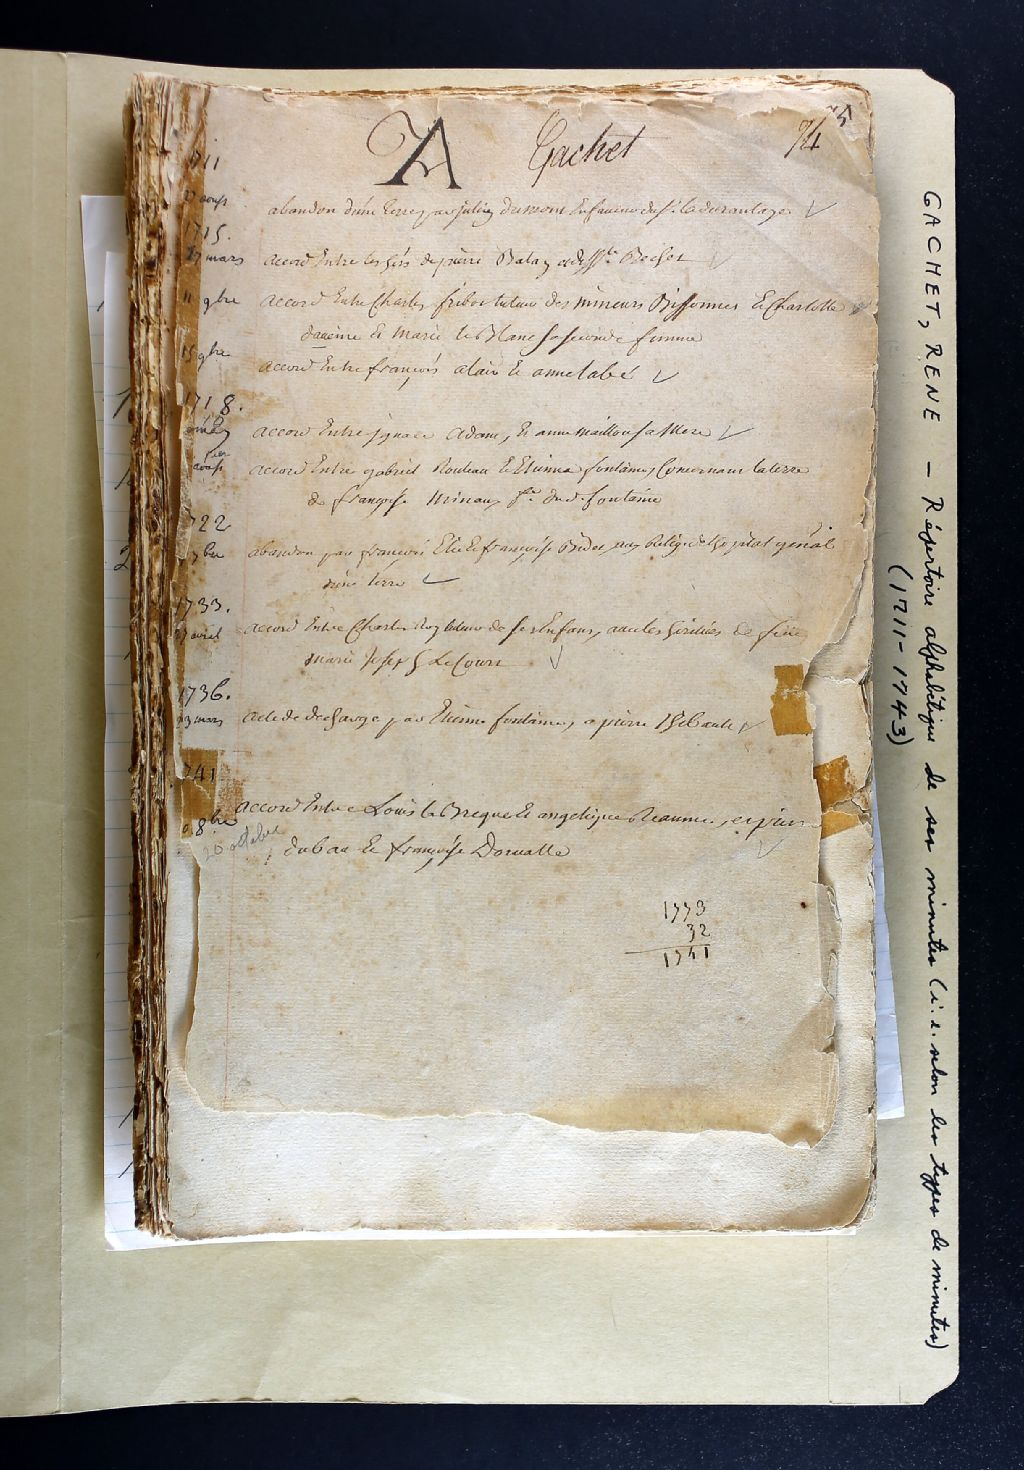 A Gachet 74 75
1711
27 aoust abandon d'une terre par julien dumont en faveur du Sr. la durantaye
1715.
27 mars accord Entre les hers de pierre Balan et Bechet
11 9bre accord Entre Charles fribot tuteur des mineurs Bissonnet & Charlotte
davenne & marie le Blanc sa seconde femme
15 9bre accord Entre françois alaire & anne labé
1718.
accord Entre jgnace adam, & anne maillou sa Mere
1er aoust accord Entre gabriel Rouleau & Etienne fontaine, Concernant la terre
de françoise Minaux fe. dud. fontaine
1722
7bre abandon par françois Elie & françoise Bidet aux Relig. de l'hopital genéal
d'une terre
1733.
27 avril accord Entre Charles Roy tuteur de ses Enfans, avec les héritiers de feüe
marie Joseph Lecours
1736.
23 mars acte de decharge par Etienne fontaine, a pierre Thibault
1741
20 8bre accord Entre Louis le Breque & angelique Reaume, et pierre
20 octobre dubau & françoise Dorvalle
1773
32
1741
GACHET, RENE — Répertoire alphabétique de ses minutes (i.e. selon les types de minutes)
(1711-1743)